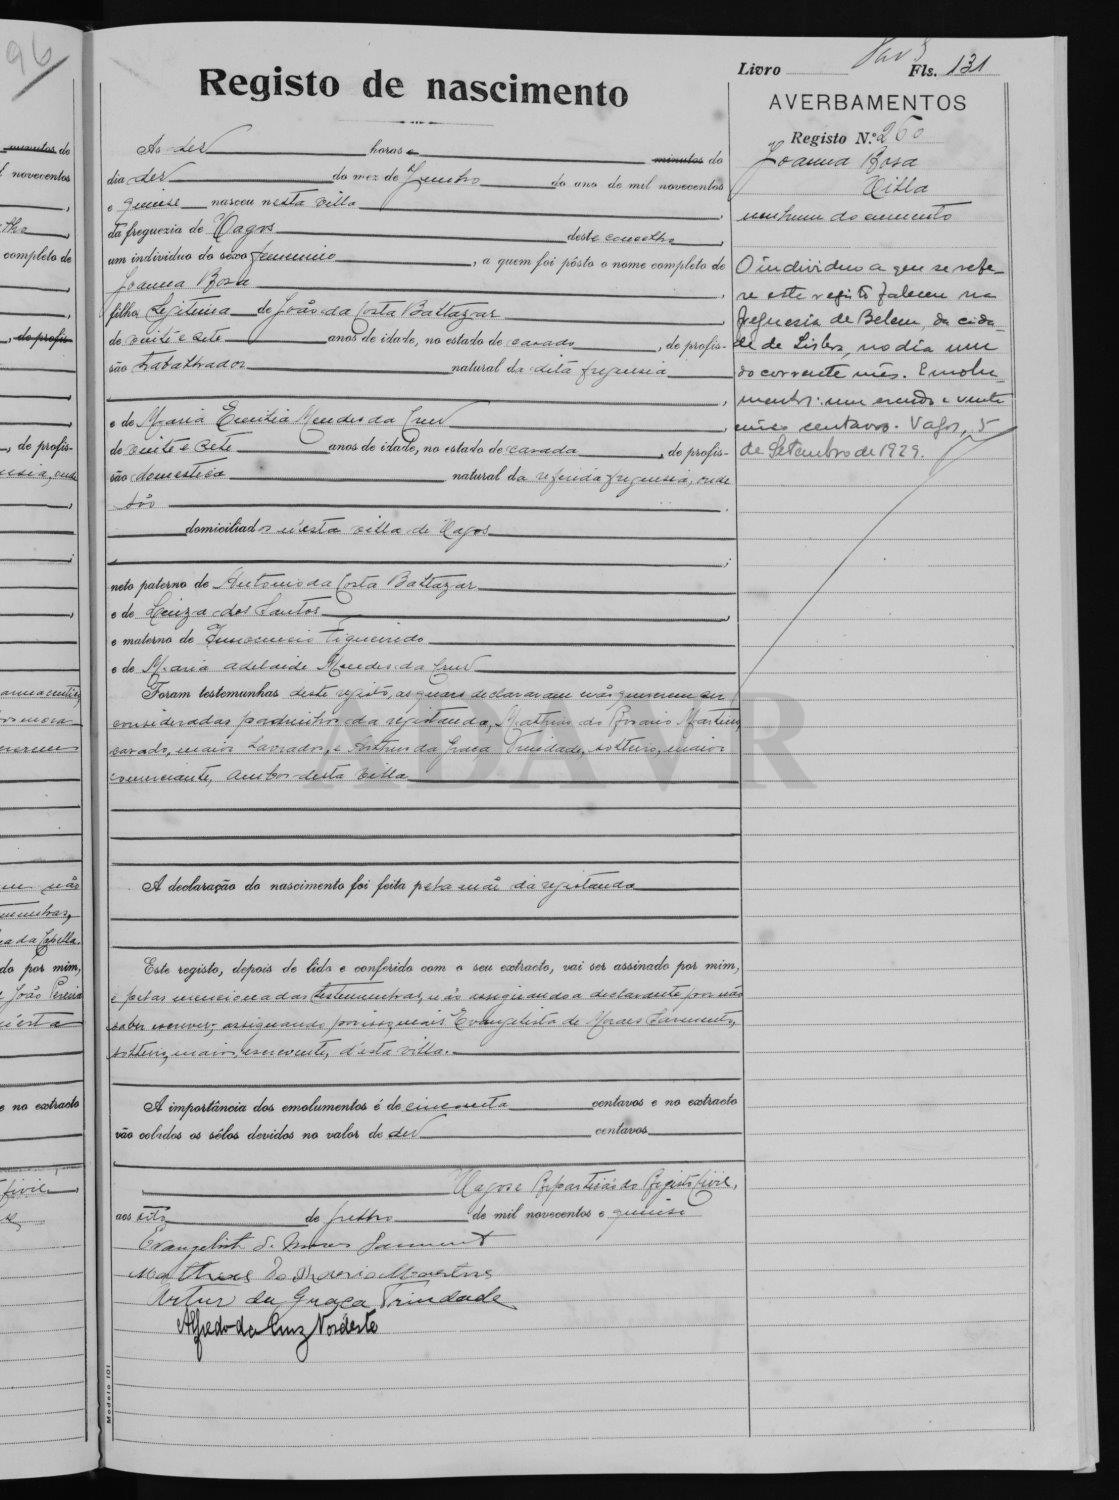 96
Livro Fls. 131
Registo de nascimento
AVERBAMENTOS
Registo N.º 260
Joanna Rosa
Villa
nenhum documento
Ás dez horas e minutos do
dia dez do mez de Junho do ano de mil novecentos
e quinse nasceu nesta villa
da freguezia de Vagos deste concelho,
um individuo do sexo femenino, a quem foi pôsto o nome completo de
Joanna Rosa,
filha Legitima de João da Costa Baltazar,
de vinte e sete anos de idade, no estado de casado, de profis-
são trabalhador natural da dita freguesia
,
e de Maria Emilia Mendes da Cruz,
de vinte e sete anos de idade, no estado de casada, de profis-
são domestica natural da referida freguesia, onde
são
domiciliados n'esta villa de Vagos
;
neto paterno de Antonio da Costa Baltazar
e de Luiza dos Santos,
e materno de Innocencio Figueiredo
e de Maria Adelaide Mendes da Cruz
Foram testemunhas deste registo, as quaes declararam não quererem ser
consideradas padrinhos da registanda, Mathias do Rosario Martins,
casado, maior, Lavrador, e Arthur da Graça Trindade, solteiro, maior
comerciante, ambos desta villa
A declaração do nascimento foi feita pela mãi da registanda
Este registo, depois de lido e conferido com o seu extracto, vai ser assinado por mim,
e pelas mencionadas testemunhas, não assignando a declarante por não
saber escrever; assignando por isso, mais Evangelista de Moraes Sarmento,
solteiro, maior, escrevente, d'esta villa.
A importância dos emolumentos é de cincoenta centavos e no extracto
vão colados os sêlos devidos no valor de dez centavos
Vagos e Repartição do Registo Civil,
aos oito de Julho de mil novecentos e quinse
Evangelista de Moraes Sarmento
Mathias do Rosario Martins
Artur da Graça Trindade
Alfredo da Cruz Nordeste
Modelo 101
O individuo a que se refe-
re este registo faleceu na
freguesia de Belem, da cida-
de de Lisboa, no dia um
do corrente mês. Emolu-
mentos: um escudo e vinte
cinco centavos. Vagos, 5
de Setembro de 1929.
ADAVR
minutos do
novecentos
completo de
, de profis-
, de profis-
não
testemunhas,
da Capella.
do por mim,
João Pereira
e no extracto
Civil